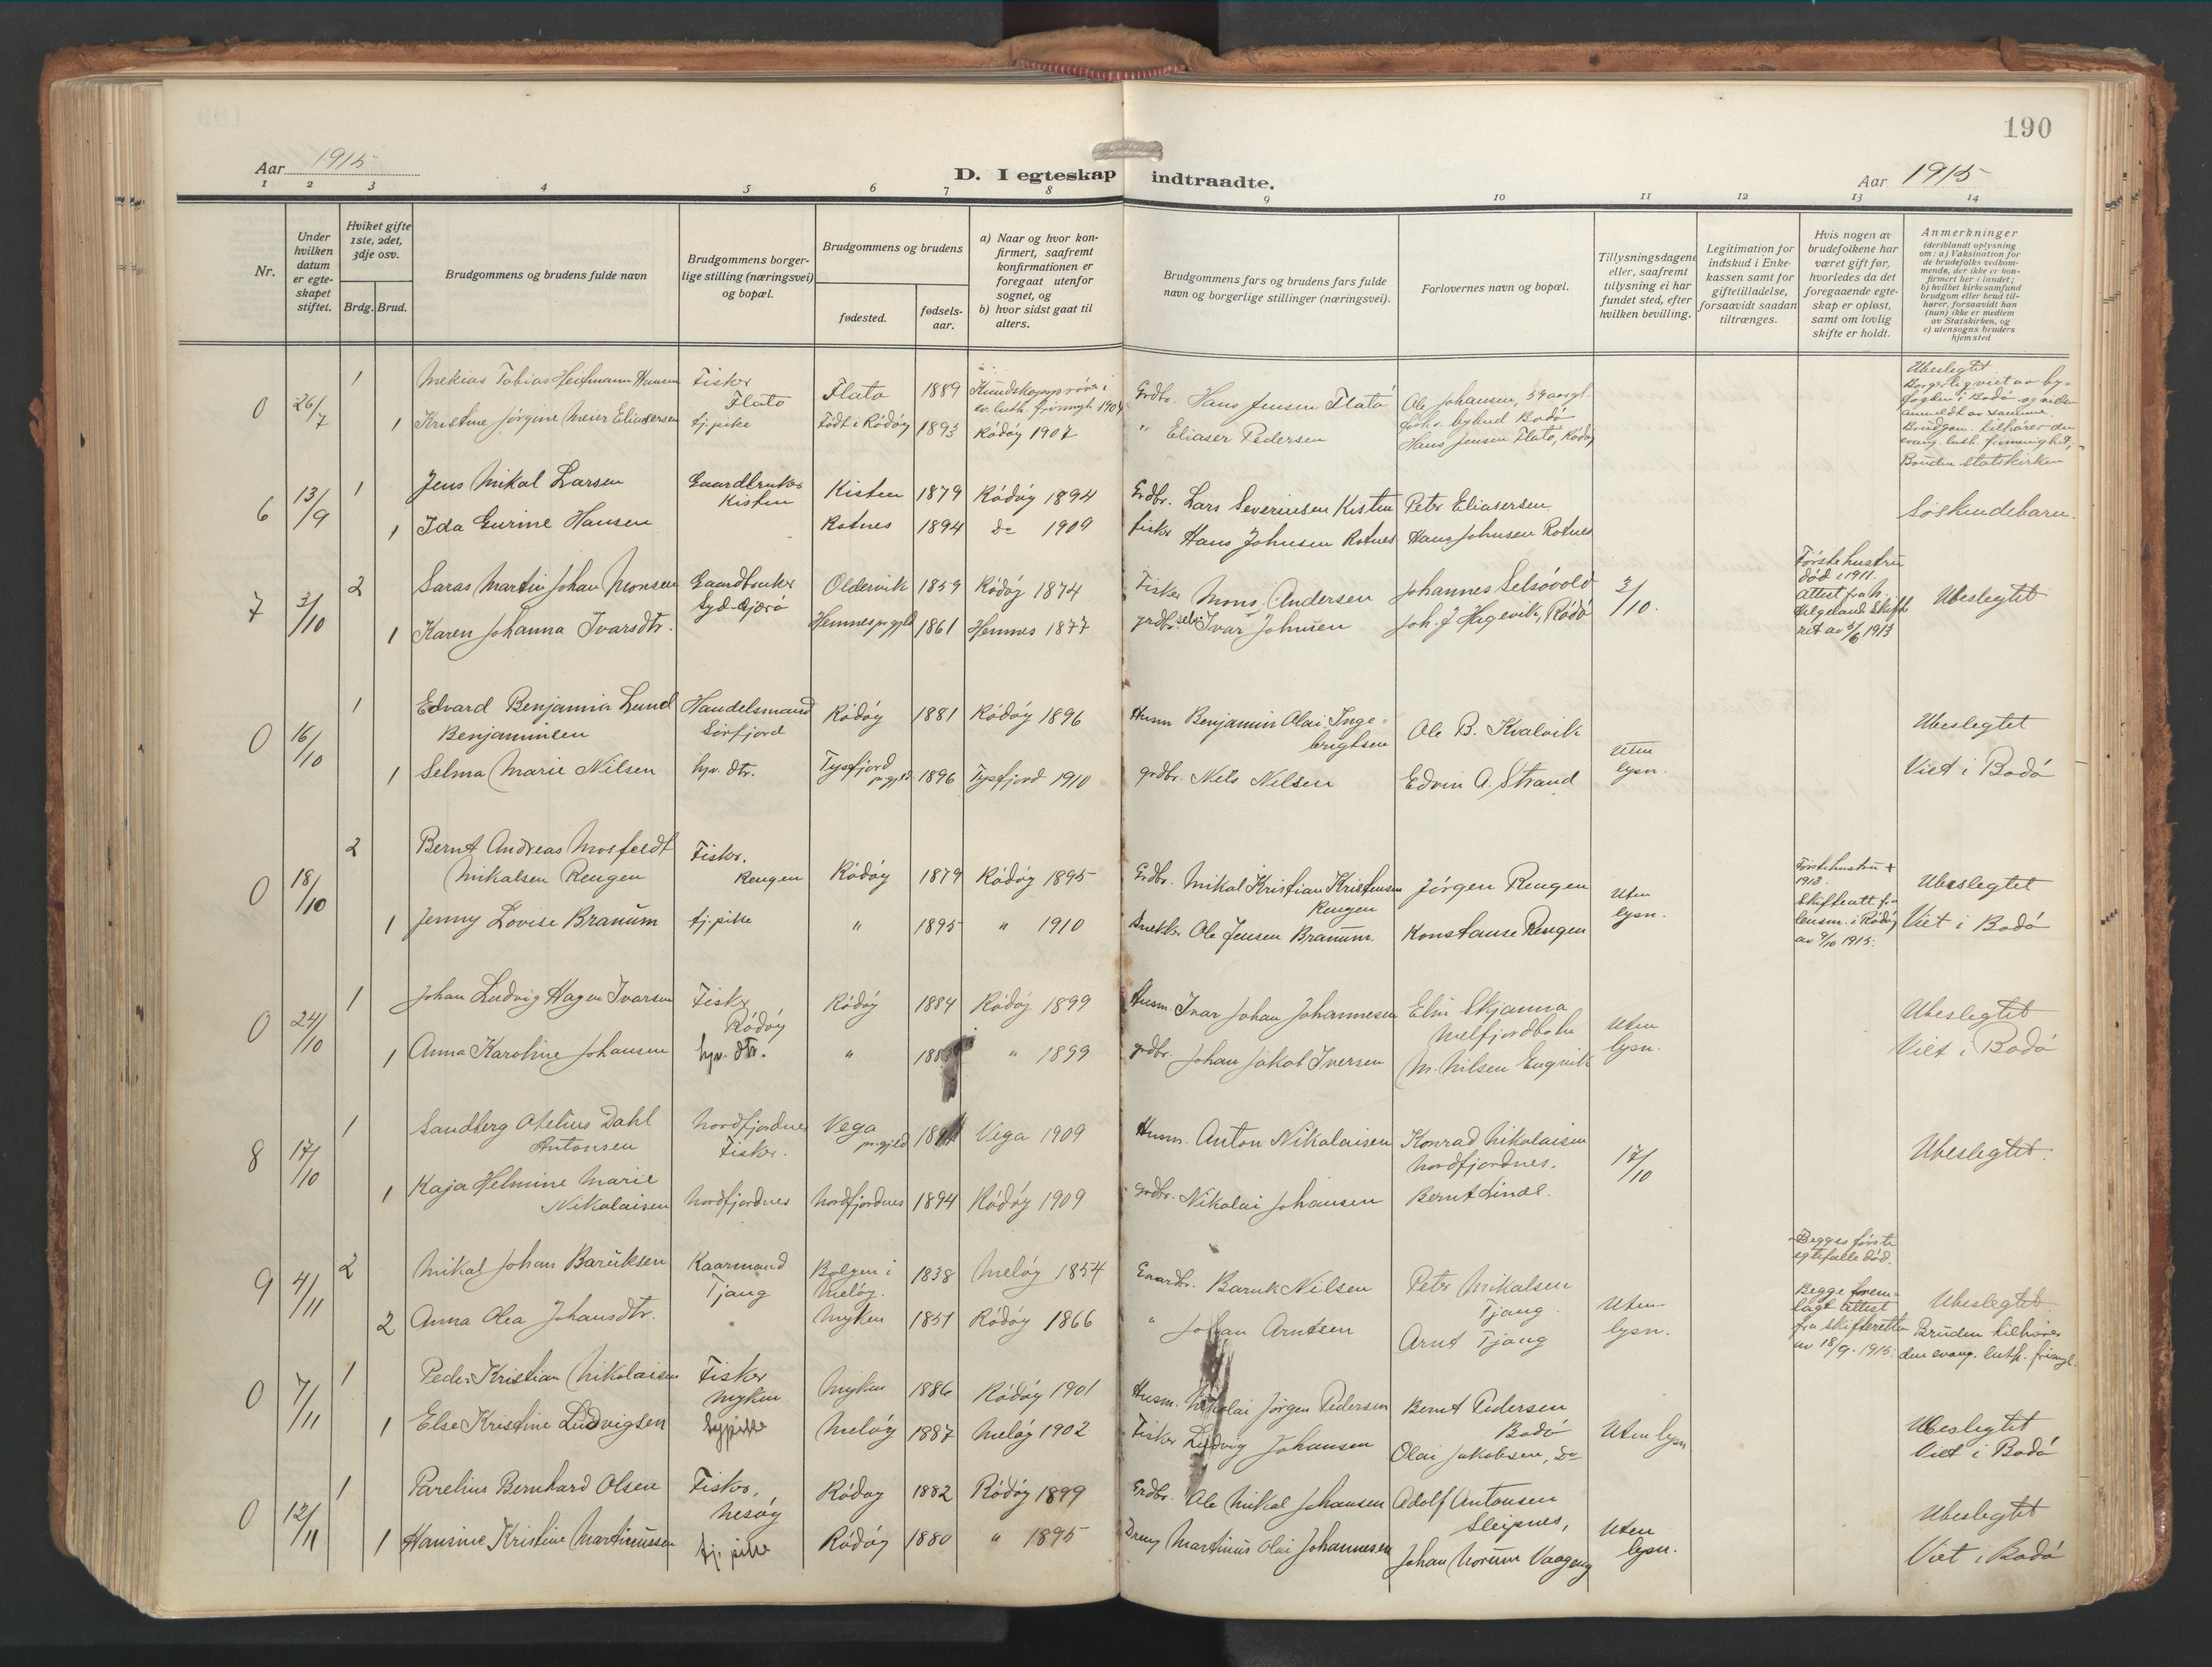 190
Aar 1915
D. I egteskap indtraadte.
Aar 1915
1 2 3 4 5 6 7 8 9 10 11 12 13 14
Nr.
Under hvilken datum er egteskapet stiftet.
Hviket gifte 1ste, 2det, 3dje osv.
Brdg. Brud.
Brudgommens og brudens fulde navn
Brudgommens borgerlige stilling (næringsvei) og bopæl.
Brudgommens og brudens
fødested.
fødselsaar.
a) Naar og hvor konfirmert, saafremt konfirmationen er foregaat utenfor sognet, og
b) hvor sidst gaat til alters.
Brudgommens fars og brudens fars fulde navn og borgerlige stillinger (næringsvei).
Forlovernes navn og bopæl.
Tillysningsdagene eller, saafremt tillysning ei har fundet sted, efter hvilken bevilling.
Legitimation for indskud i Enkekassen samt for giftetilladelse, forsaavidt saadan tiltrænges.
Hvis nogen av brudefolkene har været gift før, hvorledes da det foregaaende egteskap er opløst, samt om lovlig skifte er holdt.
Anmerkninger
(deriblandt oplysning om: a) Vaksination for de brudefolks vedkommende, der ikke er konfirmert her i landet; b) hvilket kirkesamfund brudgom eller brud tilhører, forsaavidt han (hun) ikke er medlem av Statskirken, og c) utensogns bruders hjemsted
0 26/7 1 Mekias Tobias Hansen Fisker Flatø Flatø 1889 Kundskapsprøve i ev. luth. frimngh. 1904 Grdbr. Hans Jensen Flatø Ole Johansen, 54 aar gl. bybud Bodø
1 Kristine Jørgine Meier Eliassen tj.pike Født i Rødøy 1893 Rødøy 1907 " Eliaser Pedersen Hans Jensen Flatø, Rødøy
Ubeslegtet
Borgerlig viet av byfogden i Bodø og anmeldt av samme.
Brudgom. tilhører den evang. luth. frimenighet,
Bruden statskirken
6 13/9 1 Jens Mikal Larsen Gaardbruker Kisten Kisten 1879 Rødøy 1894 Grdbr. Lars Severinsen Kisten Peter Eliasersen
1 Ida Gurine Hansen Rotnes 1894 do 1909 fisker Hans Johnsen Rotnes Hans Johnsen Rotnes
Søskendebarn.
7 3/10 2 Saras Martin Johan Monsen Gaardbruker Syd-Gjerø Oldervik 1859 Rødøy 1874 Fisker Mons Andersen Johannes Selsøvold 3/10.
1 Karen Johanna Ivarsdtr. Hemnes prgjld 1861 Hemnes 1877 grdbr. selv. Ivar Johnsen Joh. J Hagevik, Rødø
Første hustru død i 1911. Attest fra N. Helgeland Skifteret av 5/6 1913
Ubeslegtet
0 16/10 1 Edvard Benjamin Lund Benjaminsen Handelsmand Sørfjord Rødøy 1881 Rødøy 1896 Husm Benjamin Olai Ingebrigtsen Ole B. Kvalvik
1 Selma Marie Nilsen hjv. dtr. Tysfjord prgjeld 1896 Tysfjord 1910 grdbr. Nils Nilsen Edvin A. Strand
Uten lysn.
Ubeslegtet
Viet i Bodø
0 18/10 2 Bernt Andreas Mosfeldt Mikalsen Rengen Fisker. Rengen Rødøy 1879 Rødøy 1895 Grdbr. Mikal Kristian Kristensen Rengen Jørgen Rengen
1 Jenny Lovise Branum tj.pike " 1895 " 1910 Snekker Ole Jensen Branum. Konstanse Rengen
Uten lysn.
Første hustru + 1913. Skifteatt fra lensm. i Rødøy av 9/10 1915.
Ubeslegtet
Viet i Bodø
0 24/10 1 Johan Ludvig Hagen Ivarsen Fisker Rødøy Rødøy 1884 Rødøy 1899 Husm. Ivar Johan Johannesen Elin Skjanna Melfjordbotn
1 Anna Karoline Johansen hjv. dtr. " 1883 " 1899 grdbr. Johan Jakob Iversen M. Nilsen Engvik
Uten lysn.
Ubeslegtet
Viet i Bodø
8 17/10 1 Sandberg Otelius Dahl Antonsen Nordfjordnes Fisker. Vega prgjeld Vega 1909 Husm. Anton Nikolaisen Konrad Nikolaisen Nordfjordnes.
1 Kaja Helmine Marie Nikolaisen Nordfjordnes Nordfjordnes 1894 Rødøy 1909 grdbr. Nikolai Johansen Bernt Lind.
17/10
Ubeslegtet.
9 4/11 2 Mikal Johan Baruksen Kaarmand Tjong Bolgen i Meløy. 1838 Meløy 1854 Gaardbr. Baruk Nilsen Peter Mikalsen Tjong.
2 Anna Olea Johansdtr. Myken 1851 Rødøy 1866 " Johan Arntsen Arnt Tjong
Uten lysn.
Begges første egtefælle død.
Begge fremlagt attest fra skifteretten av 18/9. 1915.
Ubeslegtet.
Bruden tilhører den evang. luth. frimgt.
0 7/11 1 Peder Kristian Nikolaisen Fisker Myken Myken 1886 Rødøy 1901 Husm. Nikolai Jørgen Pedersen Bernt Pedersen Bodø
1 Else Kristine Ludvigsen Meløy 1887 Meløy 1902 Fisker Ludvig Johansen Olai Jakobsen, do
Uten lysn.
Ubeslegtet
Viet i Bodø
0 12/11 1 Parelius Bernhard Olsen Fisker, Nesøy Rødøy 1882 Rødøy 1899 Grdbr. Ole Mikal Johansen Adolf Antonsen Sleipnes,
1 Hansine Kristine Martinussen tj. pike Rødøy 1880 " 1895 Martinus Olai Johannesen Johan Norum Vaageng
Uten lysn.
Ubeslegtet
Viet i Bodø